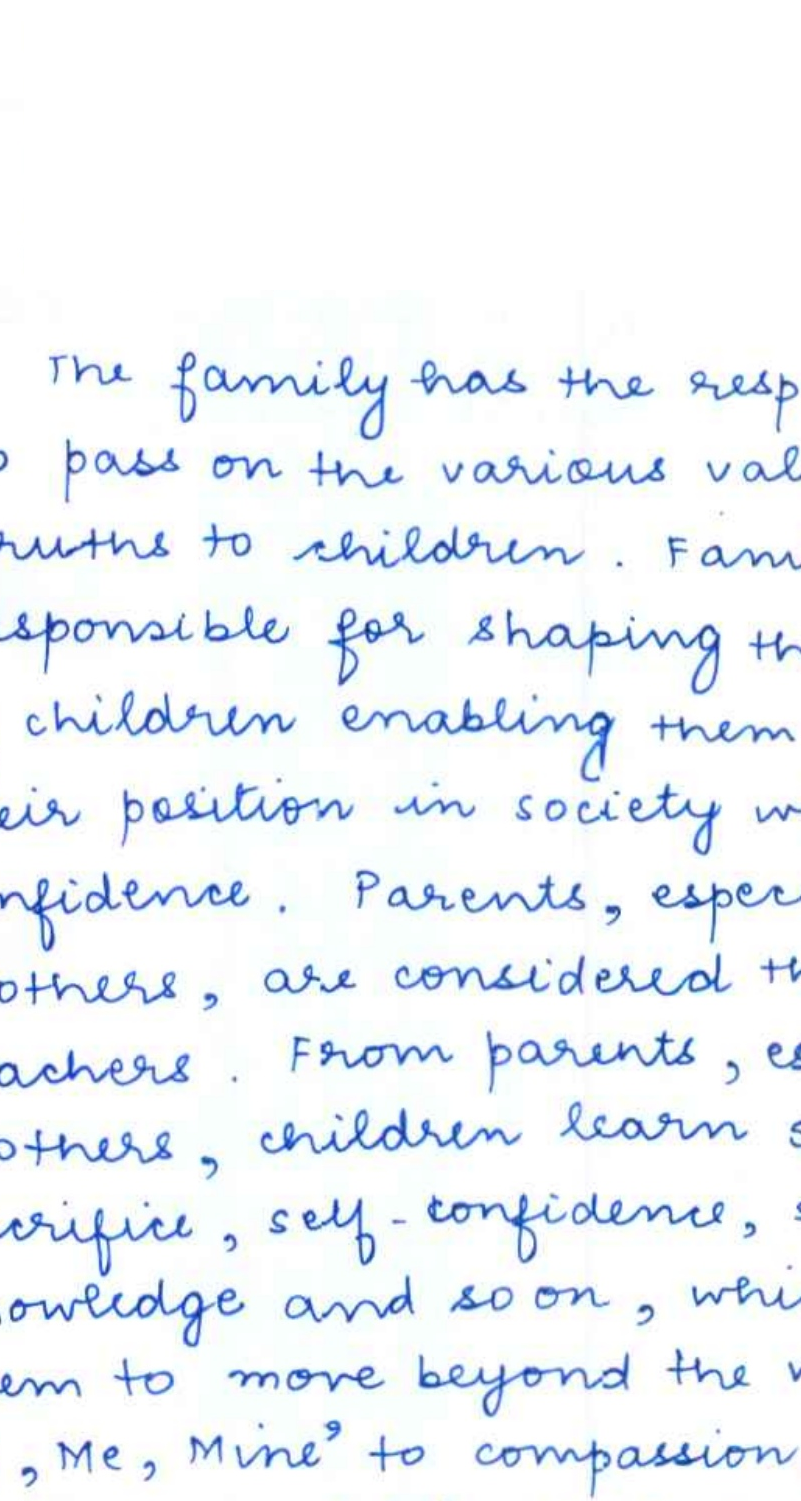 The family has the resp
pass on the various val
ruths to children. Fam
sponsible for shaping th
children enabling them
eir position in society w
nfidence. Parents, espec
others, are considered th
achers. From parents, es
others, children learn s
crifice, self-confidence, s
owledge and so on, whi
em to move beyond the
, Me, Mine' to compassion